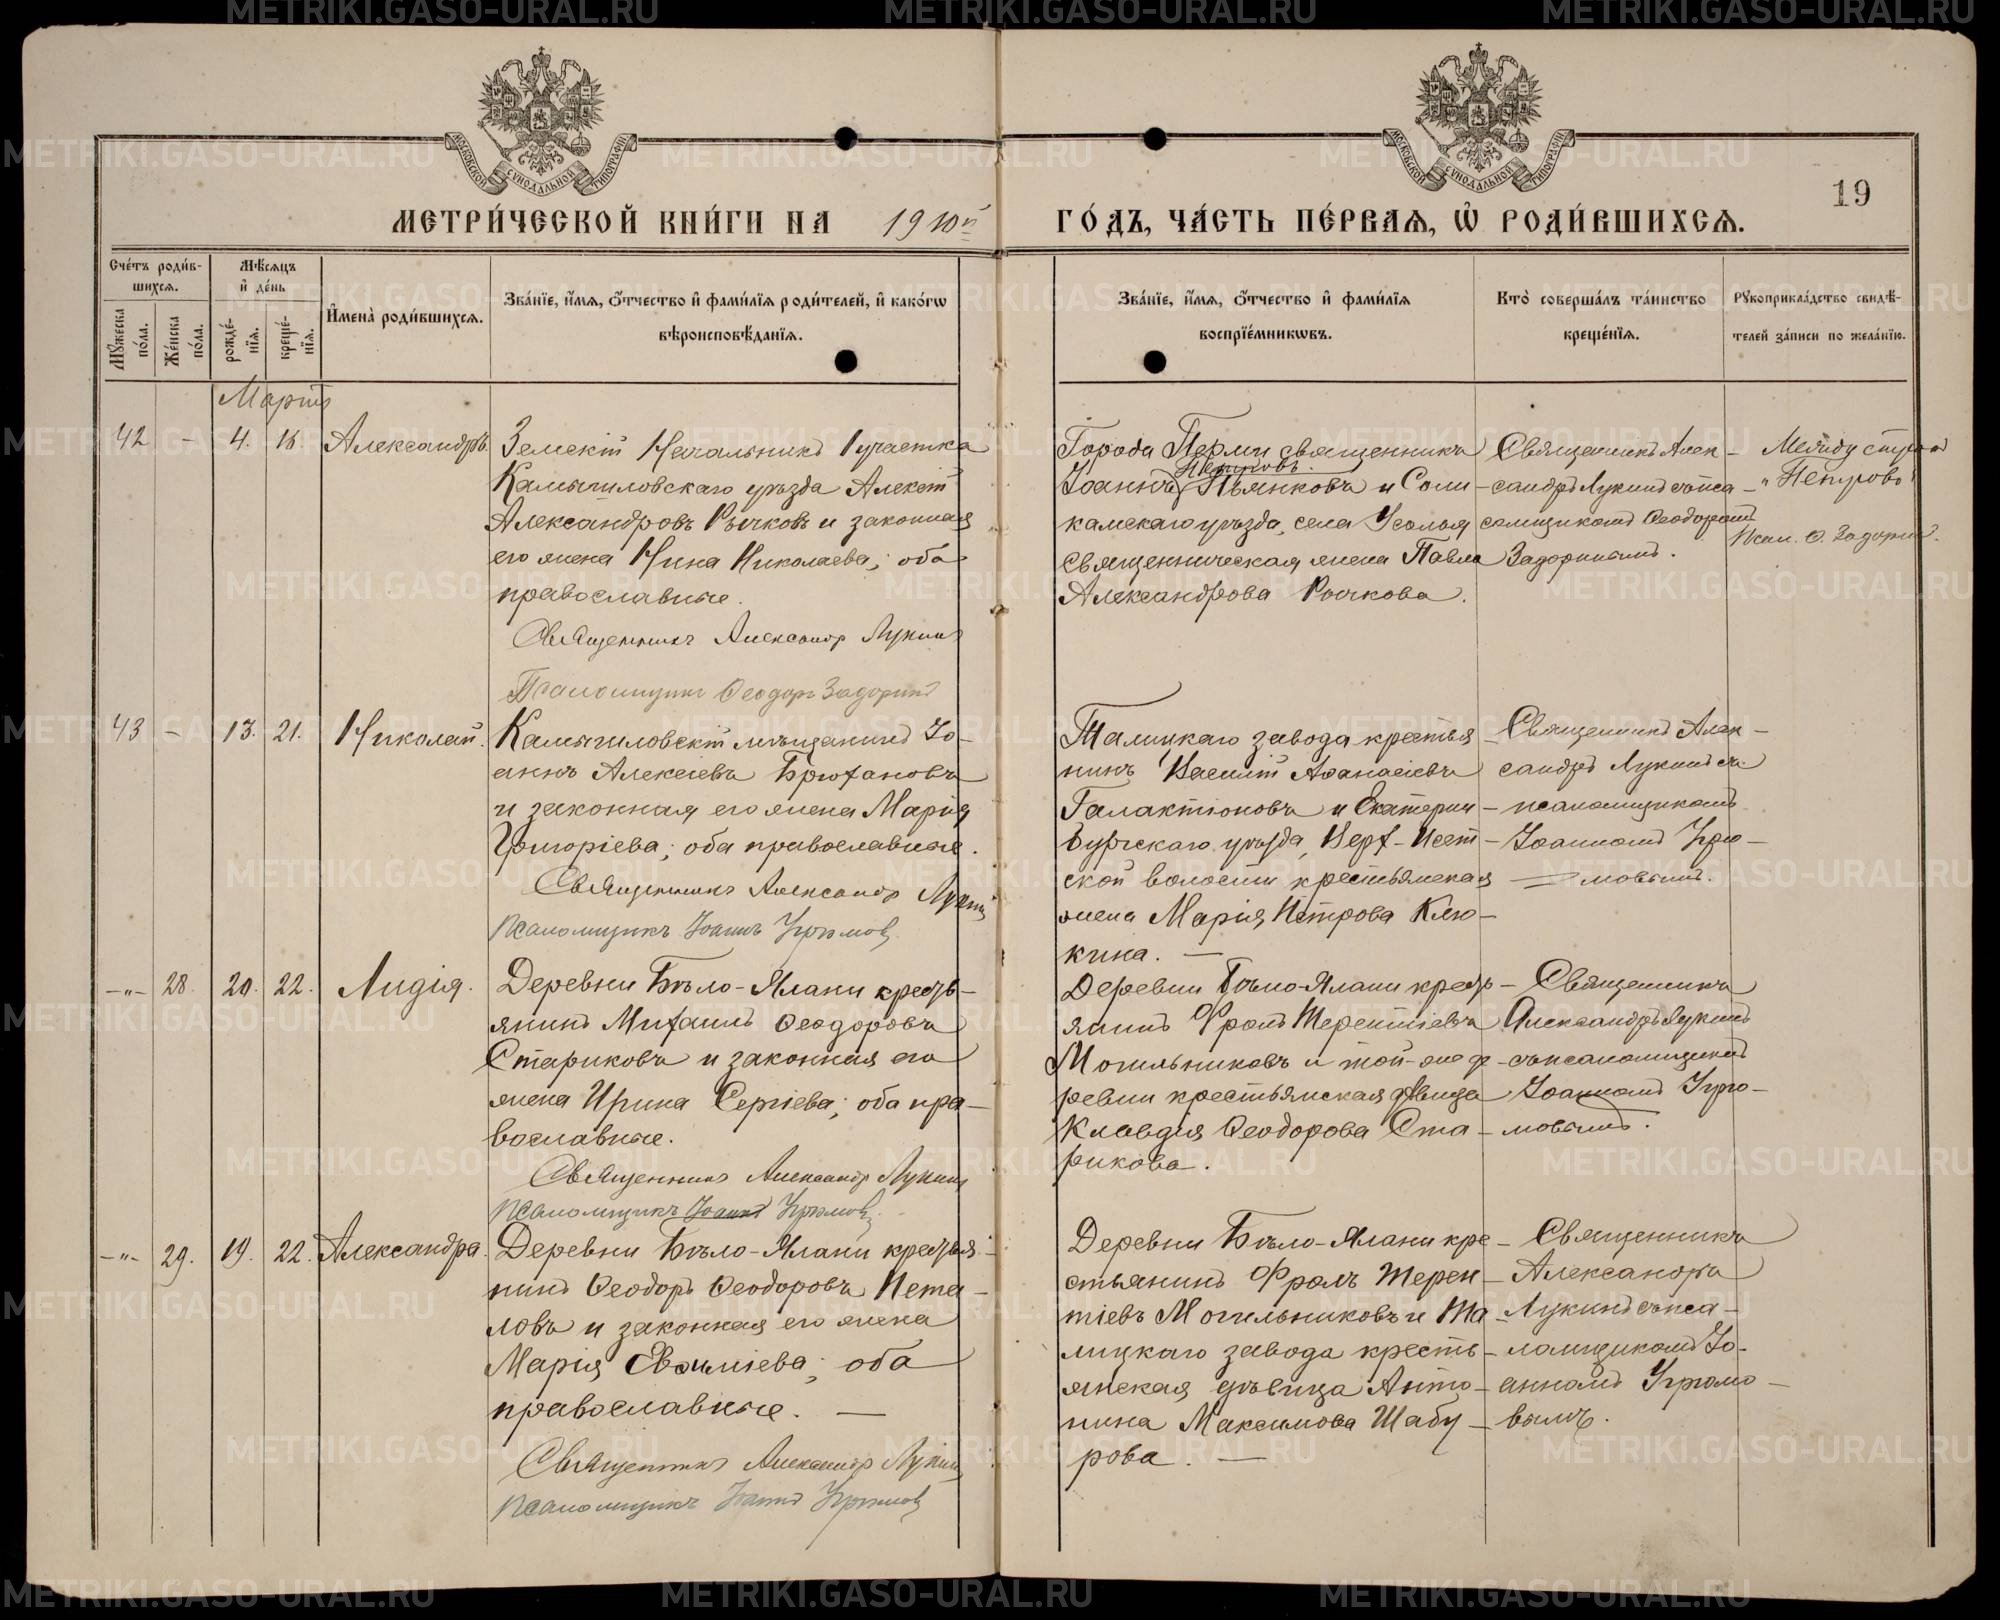 МЕТРИ́ЧЕСКОЙ КНИ́ГИ НА 1910й ГО́ДЪ, ЧА́СТЬ ПЕ́РВАѦ, Ѡ҆ РОДИ́ВШИХСѦ.
19
Сче́тъ роди́в-
шихсѧ.
Мѣ́сѧцъ
и҆ де́нь
Мꙋ́жеска
по́ла.
Же́нска
по́ла.
рожде́-
нїѧ.
креще́-
нїѧ.
И҆мена̀ роди́вшихсѧ.
Зва́нїе, и҆́мѧ, ѻ҆́тчество и҆ фами́лїѧ роди́телей, и҆ како́гѡ
вѣроисповѣ́данїѧ.
Зва́нїе, и҆́мѧ, ѻ҆́тчество и҆ фами́лїѧ
воспрїе́мникѡвъ.
Кто̀ соверша́лъ та́инство
креще́нїѧ.
Рꙋкоприкла́дство свидѣ́-
телей за́писи по жела́нїю.
Мартъ
42 - 4. 16. Александръ.
Земскій Начальникъ 1 участка
Камышловскаго уѣзда Алексѣй
Александровъ Рычковъ и законная
его жена Нина Николаева; оба
православные.
Священникъ Александр Лукин
Псаломщикъ Феодоръ Задоринъ
Города Перми священникъ
Петровъ.
Іоаннъ Пьянковъ и Соли-
камскаго уѣзда, села Усолья
священническая жена Павла
Александрова Рычкова.
Священникъ Алек-
сандръ Лукинъ съ пса-
ломщикомъ Феодоромъ
Задоринымъ.
Между строкъ
"Петровъ"
Псал. Ѳ. Задоринъ.
43 - 13. 21. Николай.
Камышловскій мѣщанинъ Іо-
аннъ Алексіевъ Брюхановъ
и законная его жена Марія
Григоріева; оба православные.
Священникъ Александръ Лукин
Псаломщикъ Іоаннъ Угрюмов
Талицкаго завода крестья-
нинъ Василій Аѳанасіевъ
Галактіоновъ и Екатерин-
бургскаго уѣзда, Верх-Исет-
ской волости крестьянская
жена Марія Петрова Клю-
кина. —
Священникъ Алек-
сандръ Лукинъ съ
псаломщикомъ
Іоанномъ Угрю-
мовымъ.
-"- 28. 20. 22. Лидія.
Деревни Бѣло-Элани кресть-
янинъ Михаилъ Феодоровъ
Стариковъ и законная его
жена Ирина Сергіева; оба пра-
вославные.
Священникъ Александр Лукин
Псаломщикъ Іоаннъ Угрюмовъ
Деревни Бѣло-Элани кресть-
янинъ Фролъ Терентіевъ
Могильниковъ и той-же де-
ревни крестьянская дѣвица
Клавдія Феодорова Ста-
рикова.
Священникъ
Александръ Лукинъ
съ псаломщикомъ
Іоанномъ Угрю-
мовымъ.
-"- 29. 19. 22. Александра.
Деревни Бѣло-Элани крестья-
нинъ Феодоръ Феодоровъ Пета-
ловъ и законная его жена
Марія оба
православные. —
Священникъ Александр Лукин
Псаломщикъ Іоаннъ Угрюмов
Деревни Бѣло-Элани кре-
стьянинъ Фролъ Терен-
тіевъ Могильниковъ и Та-
лицкаго завода кресть-
янская дѣвица Анто-
нина Максимова Шабу-
рова. —
Священникъ
Александръ
Лукинъ съ пса-
ломщикомъ Іо-
анномъ Угрюмо-
вымъ.
METRIKI.GASO-URAL.RU